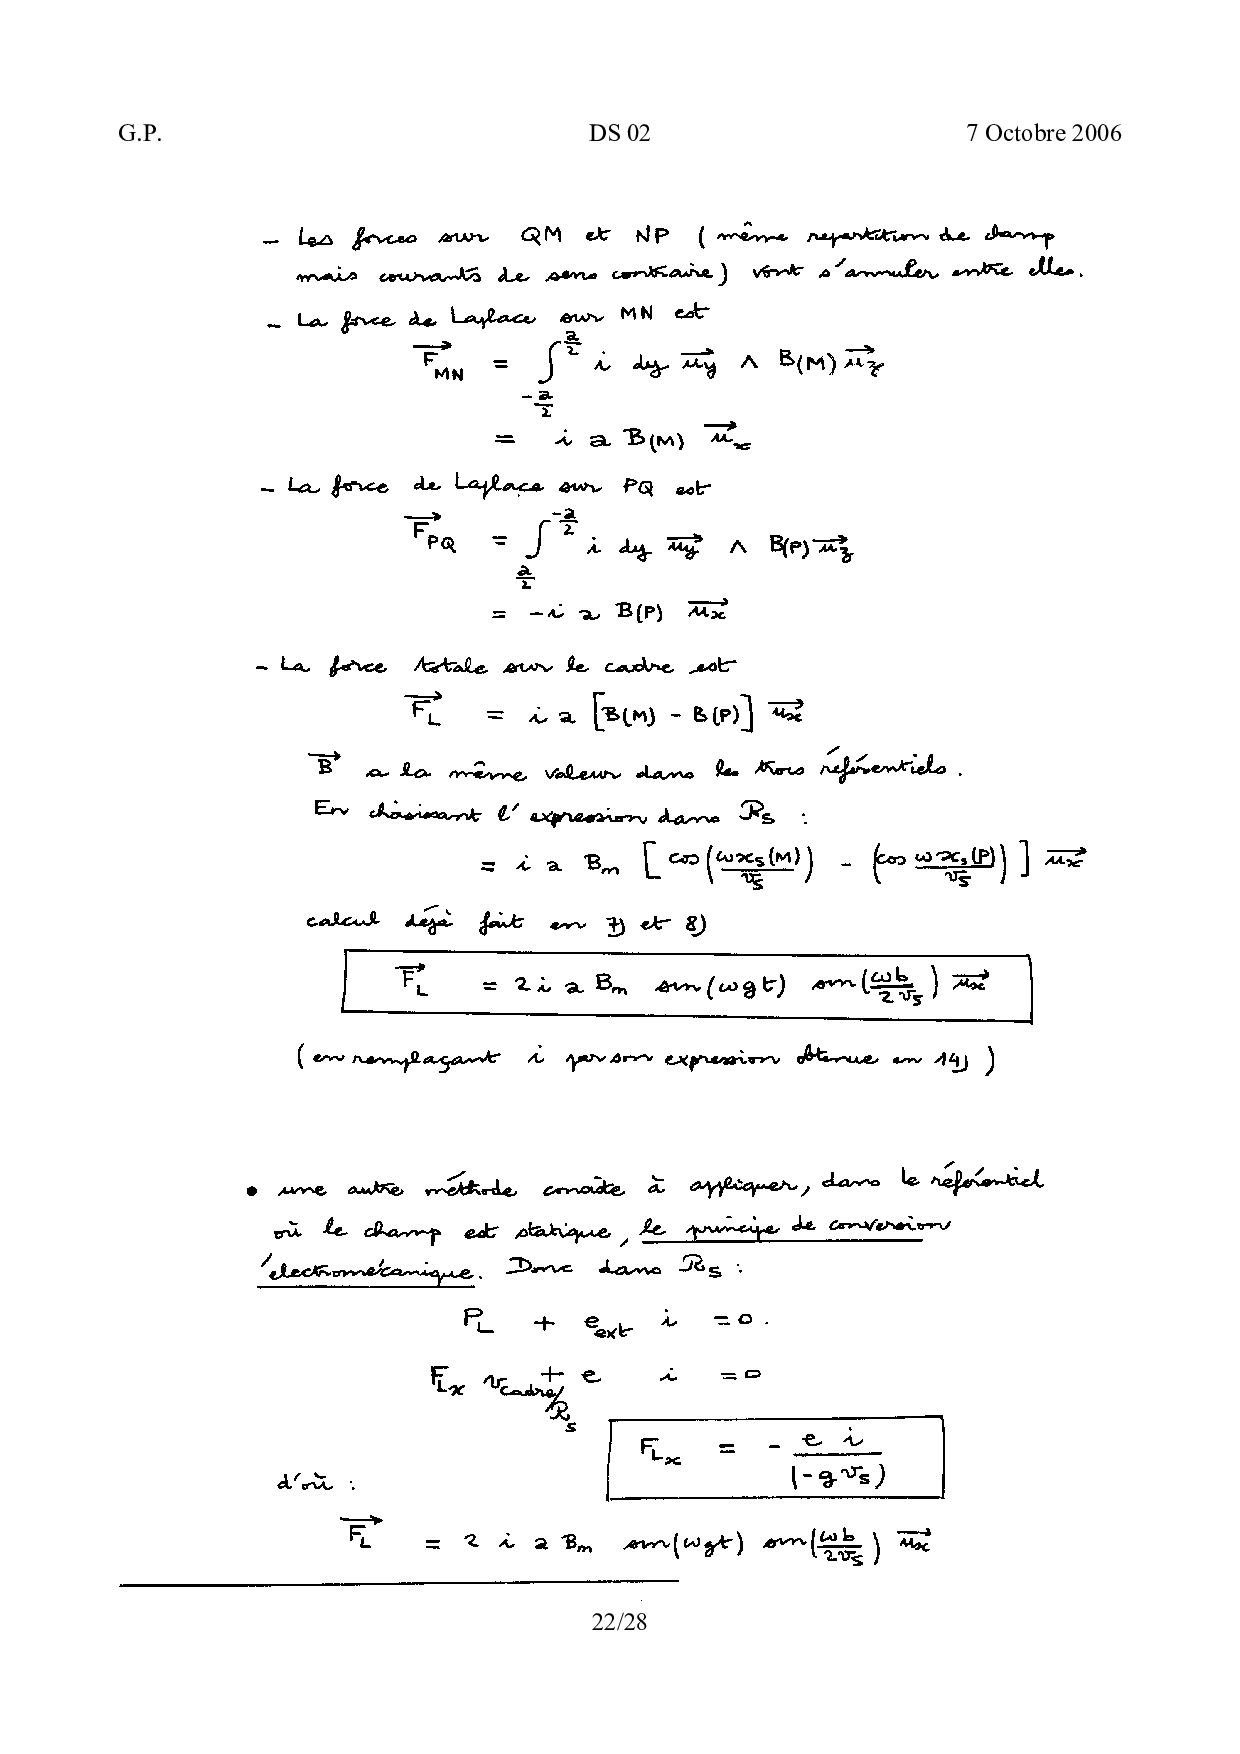 G.P. DS 02 7 Octobre 2006
– Les forces sur QM et NP ( même repartition de champ
mais courants de sens contraire) vont s'annuler entre elles.
– La force de Laplace sur MN est
$\overrightarrow{F_{MN}} = \int_{-\frac{a}{2}}^{\frac{a}{2}} i \, dy \, \overrightarrow{u_y} \wedge B(M) \overrightarrow{u_z}$
$= i a B(M) \overrightarrow{u_x}$
– La force de Laplace sur PQ est
$\overrightarrow{F_{PQ}} = \int_{\frac{a}{2}}^{-\frac{a}{2}} i \, dy \, \overrightarrow{u_y} \wedge B(P) \overrightarrow{u_z}$
$= -i a B(P) \overrightarrow{u_x}$
– La force totale sur le cadre est
$\overrightarrow{F_L} = i a [B(M) - B(P)] \overrightarrow{u_x}$
$\overrightarrow{B}$ a la même valeur dans les trois référentiels.
En choisissant l'expression dans $\mathcal{R}_S$ :
$= i a B_m [ \cos(\frac{\omega x_S(M)}{v_S}) - (\cos \frac{\omega x_S(P)}{v_S}) ] \overrightarrow{u_x}$
calcul déjà fait en 7) et 8)
$\overrightarrow{F_L} = 2 i a B_m \sin(\omega g t) \sin(\frac{\omega b}{2 v_S}) \overrightarrow{u_x}$
(en remplaçant i par son expression obtenue en 14) )
• une autre méthode consiste à appliquer, dans le référentiel
où le champ est statique, le principe de conversion
électromécanique. Donc dans $\mathcal{R}_S$ :
$P_L + e_{ext} \, i = 0.$
$F_{Lx} \, v_{cadre/\mathcal{R}_S} + e \, i = 0$
$F_{Lx} = - \frac{e \, i}{(-g v_S)}$
d'où :
$\overrightarrow{F_L} = 2 i a B_m \sin(\omega g t) \sin(\frac{\omega b}{2 v_S}) \overrightarrow{u_x}$
22/28